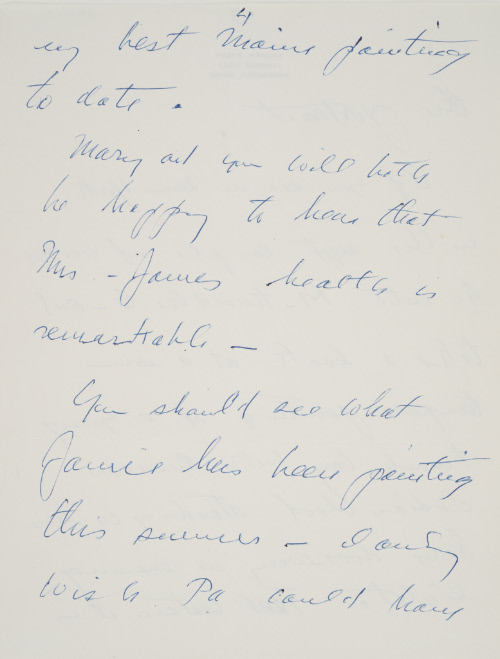 4
my best Maine painting
to date.
Mary and you will both
be happy to hear that
Mrs - James health is
remarkable —
You should see what
Jamie has been painting
this summer — I only
wish Pa could have